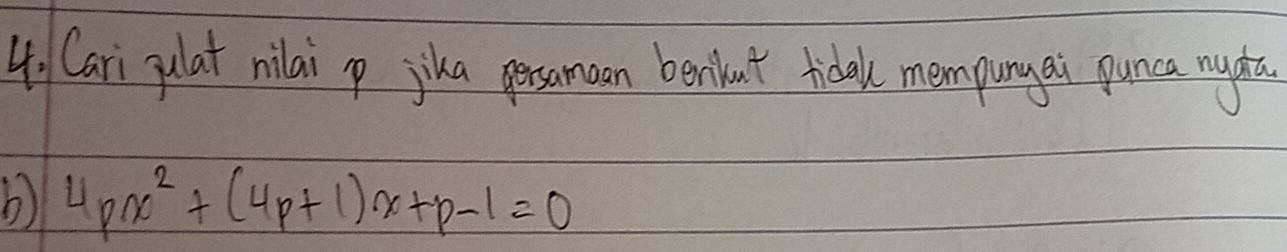 4. Cari julat nilai p jika persamaan berikut tidak mempunyai punca nyata
b) 4px² + (4p+1)x+p-1=0